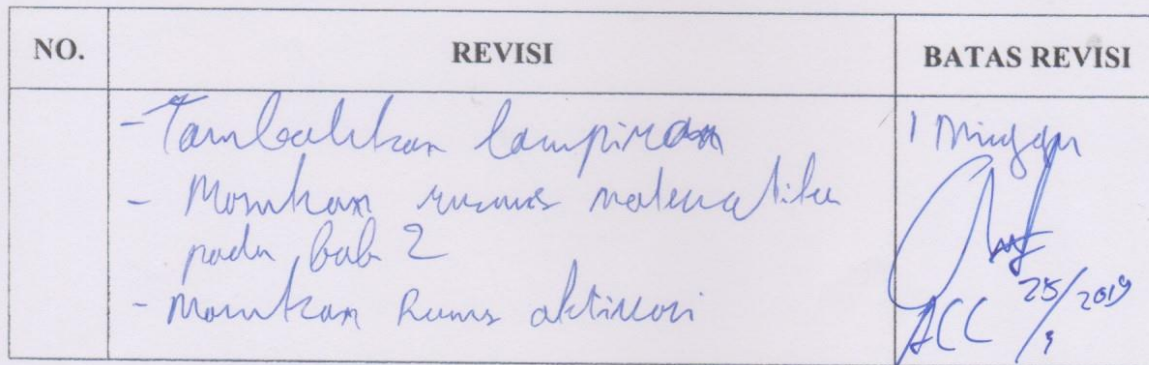 NO. REVISI BATAS REVISI
- Tambahkan lampiran 1 Minggu
- Masukan rumus matematika
pada bab 2
- Masukan Rumus aktivasi
25/9 2019
ACC